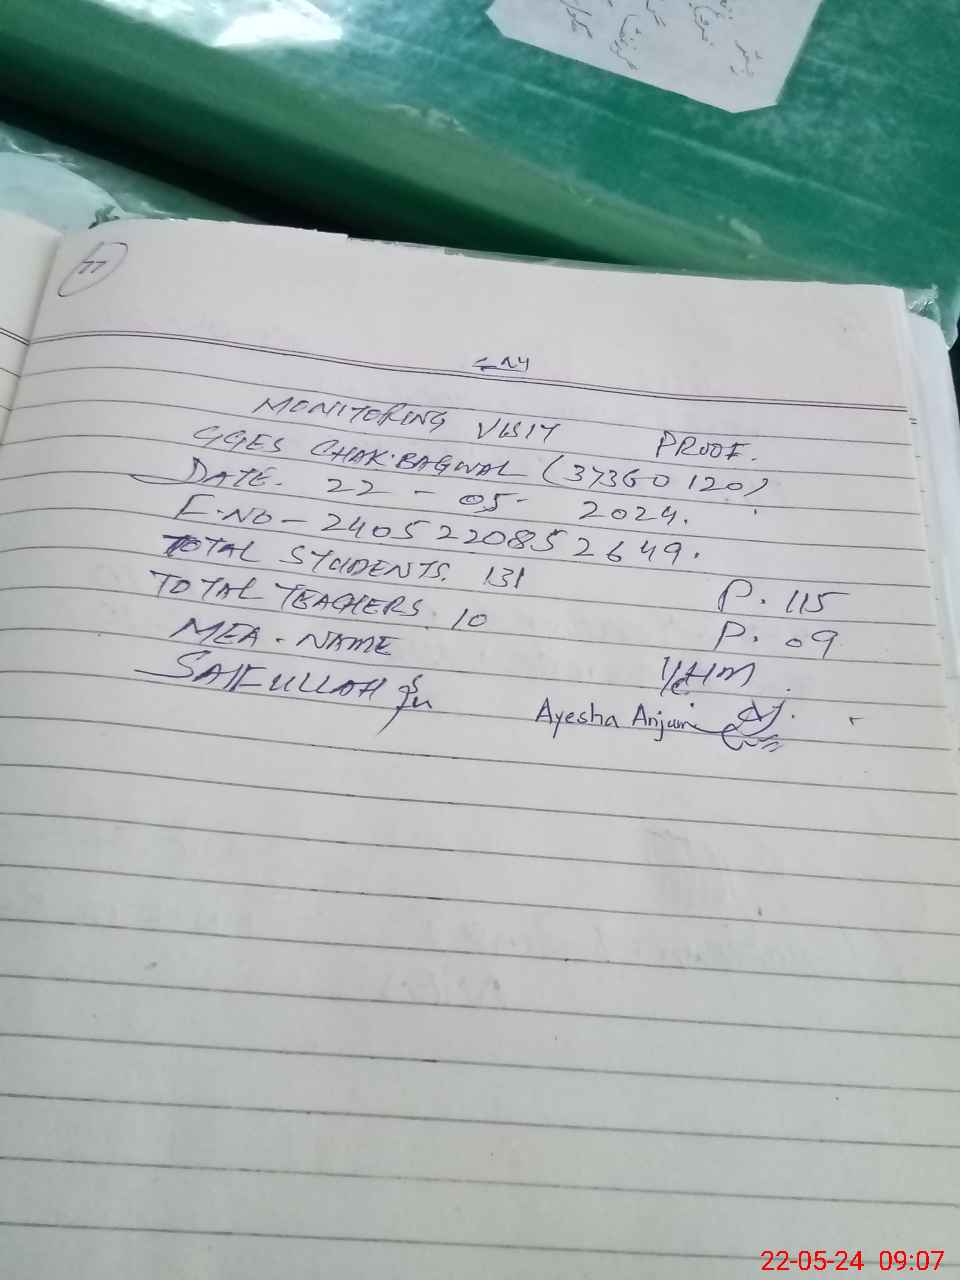 77
MONITORING VISIT PROOF.
GGES CHAK.BAGWAL (37360120)
DATE- 22 - 05- 2024.
F.NO-2405220852649.
TOTAL STUDENTS. 131 P. 115
TOTAL TEACHERS. 10 P. 09
MEA. NAME I/C HM
SAIFULLAH Ayesha Anjum
22-05-24 09:07